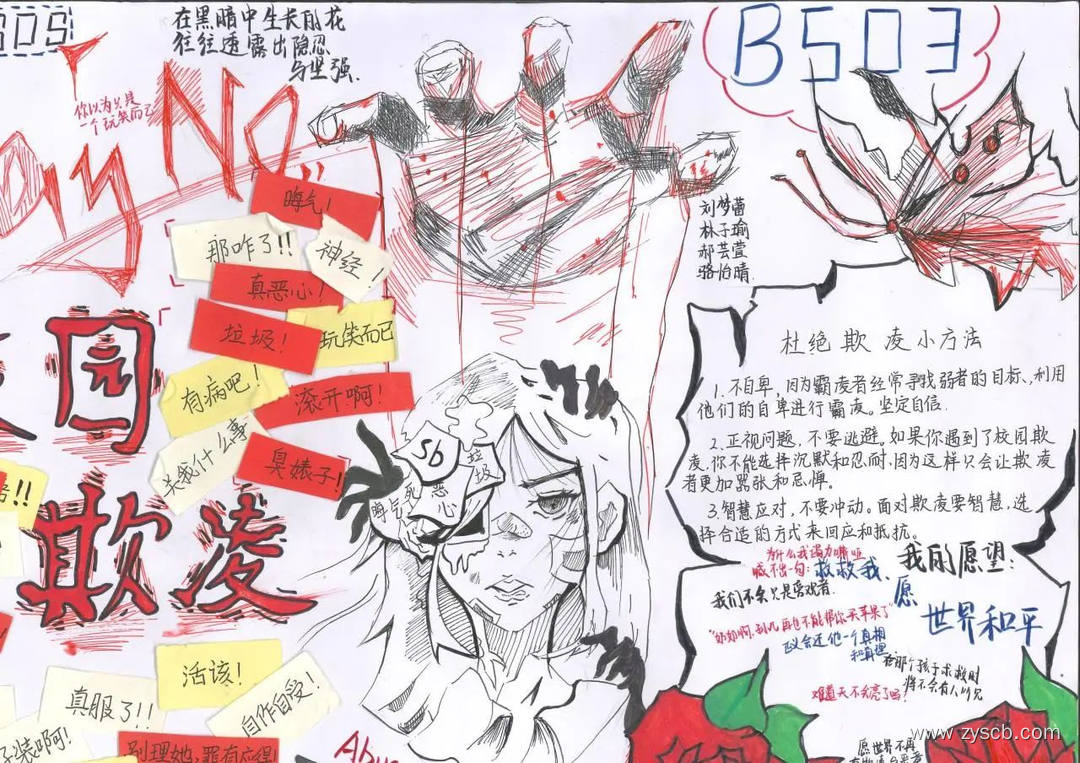 SOS
在黑暗中生长的花
往往透露出隐忍
与坚强.
BSO3
你以为只是
一个玩笑而已
ay No
刘梦蕾
林子瑜
郝芸萱
骆怡晴
晦气!
那咋了!!
神经!
真恶心!
垃圾!
玩笑而已
有病吧!
滚开啊!
关我什么事
臭婊子!
园
欺凌
Sb
垃圾
恶心
死
晦气
杜绝欺凌小方法
1.不自卑,因为霸凌者经常寻找弱者的目标,利用
他们的自卑进行霸凌。坚定自信.
2.正视问题,不要逃避。如果你遇到了校园欺
凌,你不能选择沉默和忍耐,因为这样只会让欺凌
者更加嚣张和忌惮。
3.智慧应对,不要冲动。面对欺凌要智慧,选
择合适的方式来回应和抵抗。
为什么我竭力嘶哑
喊不出一句:救救我、
我们不会只是旁观者.
我的愿望:
愿
世界和平
正义会还他一个真相
和真理
在那个孩子求救时
将不会有人
难道天不会亮了吗!
活该!
真服了!!
自作自受!
装啊!
别理她,罪有应得!
Abus
愿世界不再
www.zyscb.com